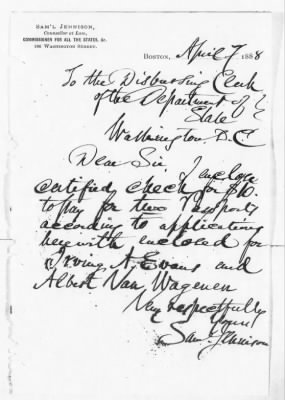 SAM'L JENNISON,
Counsellor at Law,
COMMISSIONER FOR ALL THE STATES, &c.
BOSTON, April 7 1888
To the Disbursing Clerk
of the Department of
State
Washington D.C
Dear Sir.
I enclose
certified check for $10.
to pay for two Passports
according to applications
herewith enclosed for
Irving A. Evans and
Albert Van Wagenen
Very respectfully
Yours
Saml. Jennison